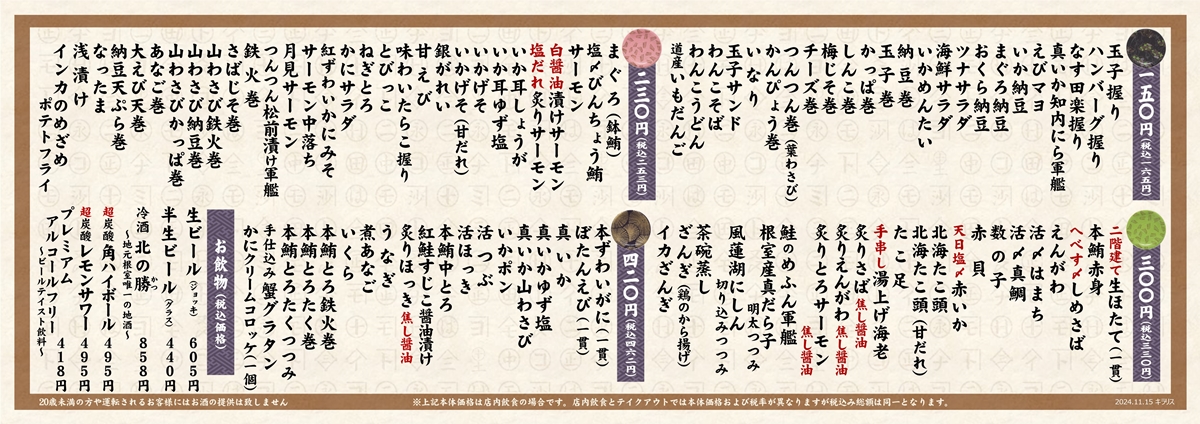 一五〇円(税込一六五円)
玉子握り
ハンバーグ握り
なす田楽握り
真いか知内にら軍艦
えびマヨ
いか納豆
まぐろ納豆
おくら納豆
ツナサラダ
海鮮サラダ
いかめんたい
納豆巻
玉子巻
かっぱ巻
しんこ巻
梅じそ巻
チーズ巻
つんつん巻(葉わさび)
かんぴょう巻
いなり
玉子サンド
わんこそば
わんこうどん
道産いもだんご
二三〇円(税込二五三円)
まぐろ(鉢鮪)
塩〆びんちょう鮪
サーモン
白醤油漬けサーモン
塩だれ炙りサーモン
いか耳しょうが
いか耳ゆず塩
いかげそ
いかげそ(甘だれ)
銀がれい
甘えび
味わいたらこ握り
とびっこ
ねぎとろ
かにサラダ
紅ずわいかにみそ
サーモン中落ち
月見サーモン
つんつん松前漬け軍艦
鉄火巻
さばじそ巻
山わさび鉄火巻
山わさび納豆巻
山わさびかっぱ巻
あなご巻
大えび天巻
納豆天ぷら巻
なったま
浅漬け
インカのめざめ
ポテトフライ
三〇〇円(税込三三〇円)
二階建て生ほたて(一貫)
本鮪赤身
へべす〆しめさば
えんがわ
活〆はまち
活〆真鯛
数の子
赤貝
天日塩〆赤いか
北海たこ頭
北海たこ頭(甘だれ)
たこ足
手串し湯上げ海老
炙りさば焦し醤油
炙りえんがわ焦し醤油
炙りとろサーモン
焦し醤油
鮭のめふん軍艦
根室産真だら子
明太つつみ
風蓮湖にしん
切り込みつつみ
茶碗蒸し
ざんぎ(鶏のから揚げ)
イカざんぎ
四二〇円(税込四六二円)
本ずわいがに(一貫)
ぼたんえび(一貫)
真いか
真いかゆず塩
真いか山わさび
いかポン
活つぶ
活ほっき
本鮪中とろ
紅鮭すじこ醤油漬け
炙りほっき焦し醤油
うなぎ
煮あなご
いくら
本鮪とろ鉄火巻
本鮪とろたくつつみ
本鮪とろたくつつみ
手仕込み蟹グラタン
かにクリームコロッケ(一個)
お飲物(税込価格)
生ビール(ジョッキ) 605円
半生ビール(グラス) 440円
冷酒 北の勝 858円
かつ
~地元根室唯一の地酒~
超炭酸角ハイボール 495円
超炭酸レモンサワー 495円
プレミアム
アルコールフリー 418円
~ビールテイスト飲料~
20歳未満の方や運転されるお客様にはお酒の提供は致しません
※上記本体価格は店内飲食の場合です。店内飲食とテイクアウトでは本体価格および税率が異なりますが税込み総額は同一となります。
2024.11.15 キラリス